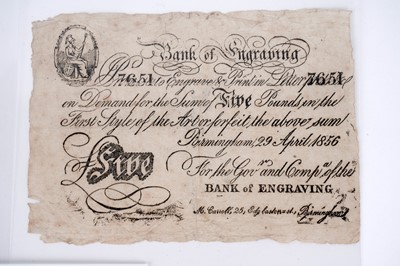 Bank of Engraving
I Promise to Engrave & Print in Letter press
7651 7651
on Demand for the Sum of Five Pounds, in the
First Style of the Art or forfeit the above sum
Birmingham, 29 April 1856
£Five
For the Govr. and Compa. of the
BANK of ENGRAVING
M. Carroll, 25, Edgbaston st., Birmingham